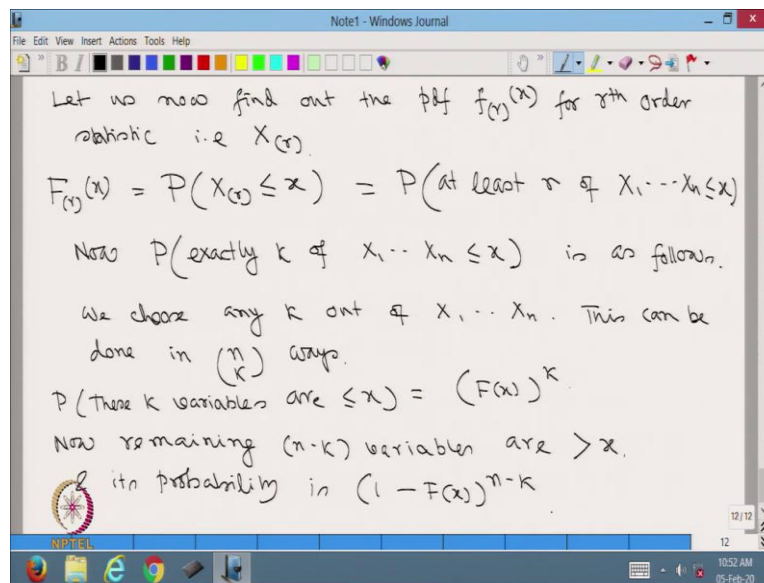 Note1 - Windows Journal
File Edit View Insert Actions Tools Help
Let us now find out the pdf f_(r)(x) for rth order
statistic i.e X_(r).
F_(r)(x) = P(X_(r) ≤ x) = P(at least r of X_1 ---- X_n ≤ x)
Now P(exactly k of X_1 -- X_n ≤ x) is as follows.
We choose any k out of X_1 -- X_n. This can be
done in (n k) ways.
P(These k variables are ≤ x) = (F(x))^k
Now remaining (n-k) variables are > x.
& its probability is (1 - F(x))^{n-k}
NPTEL
12/12
12
10:52 AM
05-Feb-20